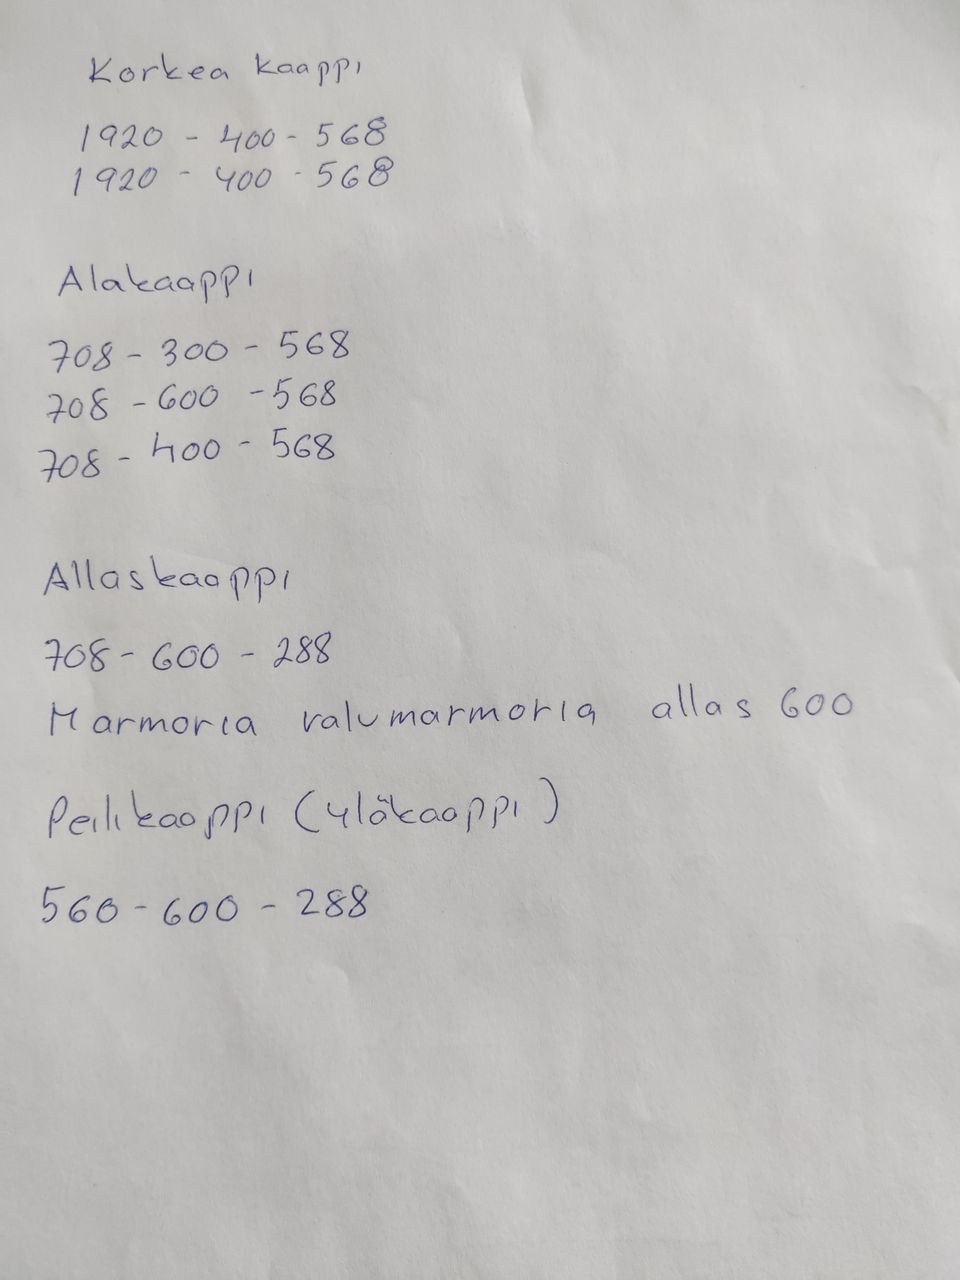 Korkea kaappi
1920 - 400 - 568
1920 - 400 - 568
Alakaappi
708 - 300 - 568
708 - 600 - 568
708 - 400 - 568
Allaskaappi
708 - 600 - 288
Marmoria valumarmoria allas 600
Peilikaappi (yläkaappi)
560 - 600 - 288